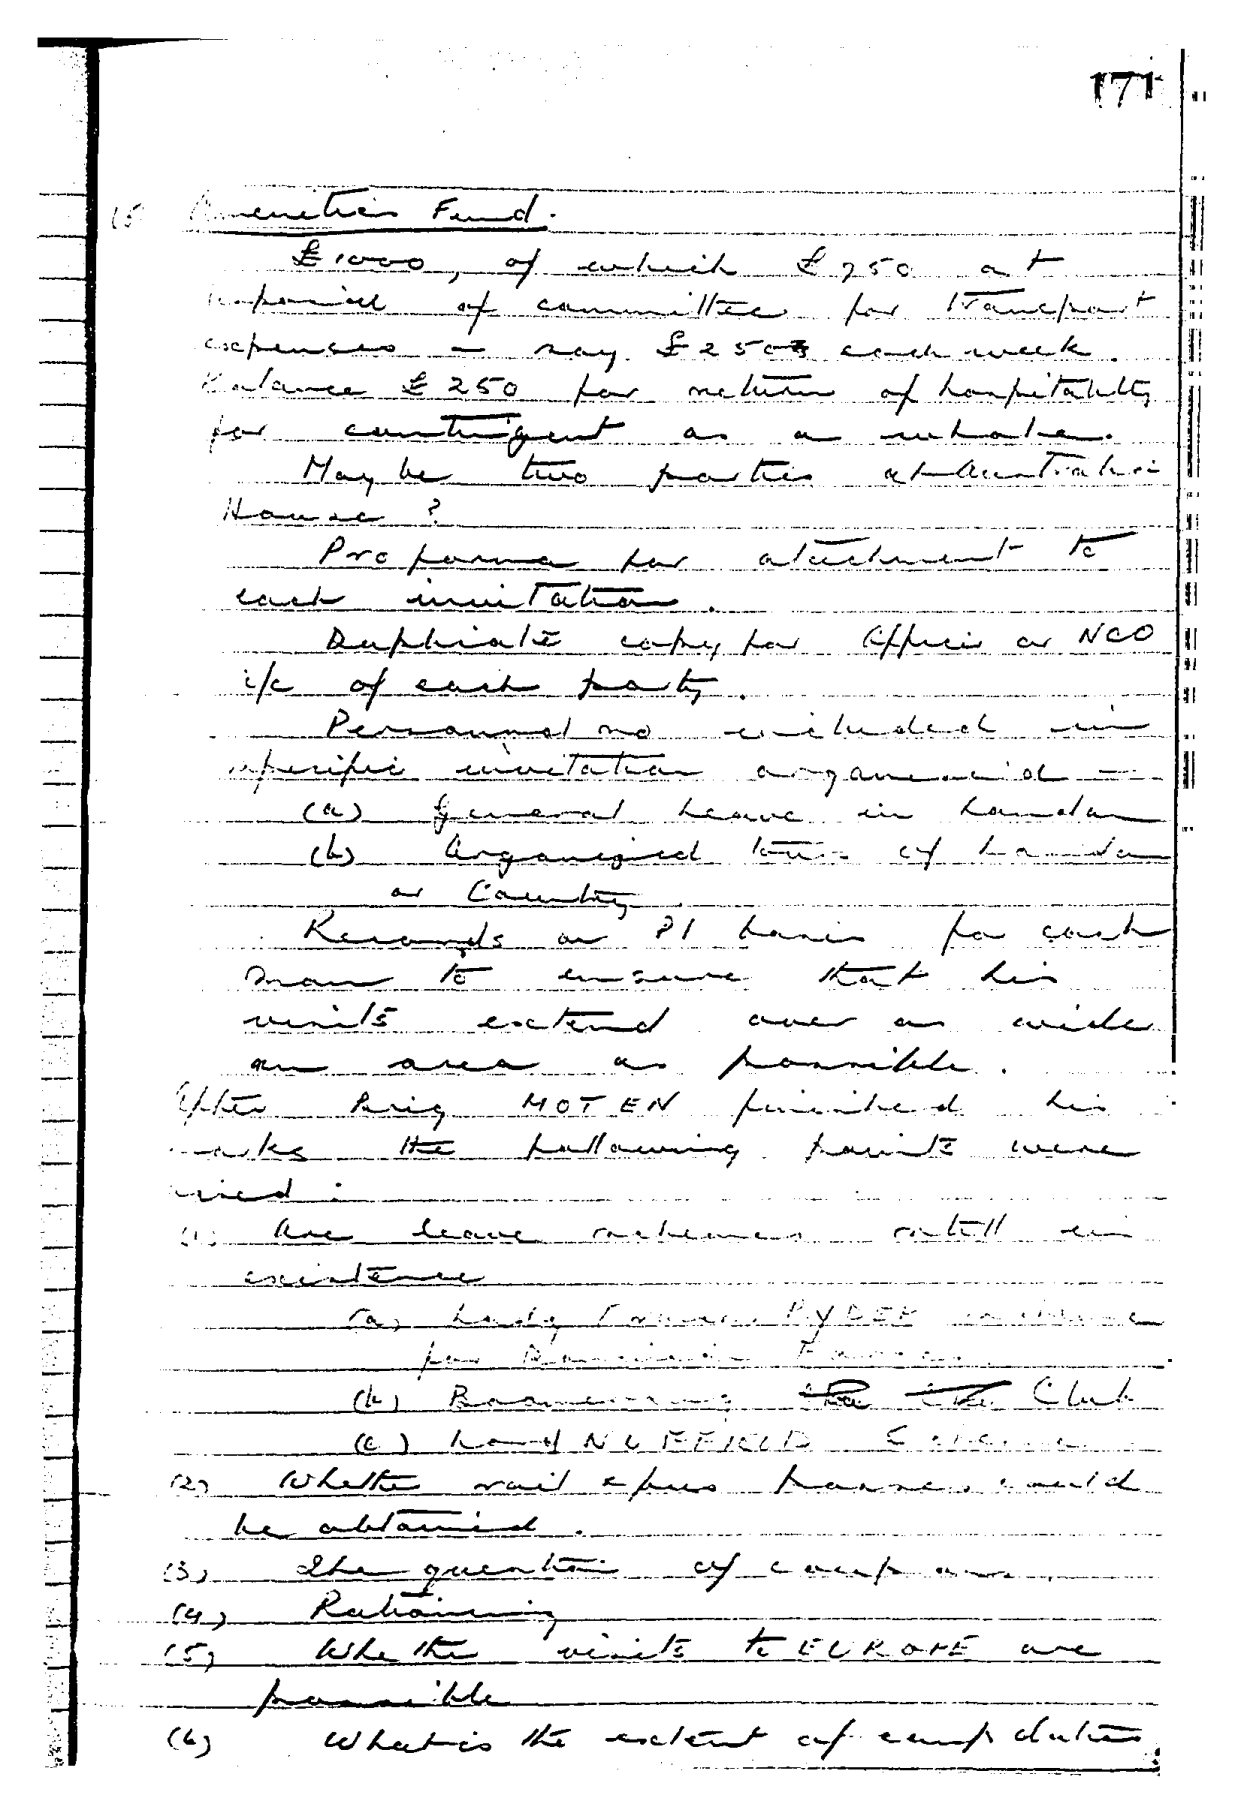 171
(5) Amenities Fund.
£1000, of which £750 at
disposal of committee for transport
expenses – say £250 each week.
Balance £250 for return of hospitality
for contingent as a whole.
May be two parties at Australia
House ?
Proforma for attachment to
each invitation.
Duplicate copy for Officer or NCO
i/c of each party.
Personnel no included in
specific invitation organised –
(a) General leave in London
(b) Organised tours of London
or Country.
Records on Pl basis for each
man to ensure that his
visits extend over as wide
an area as possible.
After Brig MOTEN finished his
the following points were
(1) Are leave schemes still in
existence
(a) Lady Frances RYDER scheme
for Dominion Forces
(b) Boomerang Club
(c) Lord NUFFIELD Scheme
(2) Whether rail & bus passes could
be obtained.
(3) The question of coupons.
(4) Rationing
(5) Whether visits to EUROPE are
possible
(6) What is the extent of camp duties